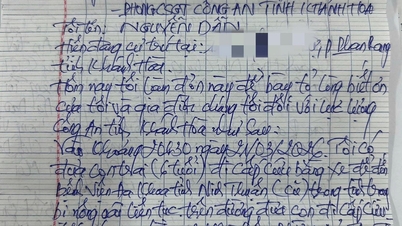 PHÒNG CSGT CÔNG AN TỈNH KHÁNH HÒA
Tôi tên: NGUYỄN DẦN
Hiện đang cư trú tại: P. Phan Rang
tỉnh Khánh Hòa.
Hôm nay tôi làm đơn này để bày tỏ lòng biết ơn
của tôi và gia đình chúng tôi đối với lực lượng
Công An tỉnh Khánh Hòa như sau:
Vào khoảng 20h30 ngày 21/03/2026. Tôi có
đưa con trai (6 tuổi) đi cấp cứu bằng xe để đến
bệnh viện đa khoa tỉnh Ninh Thuận (cũ) trong tình trạng
bị nóng co giật liên tục. trên đường đưa con đi cấp cứu